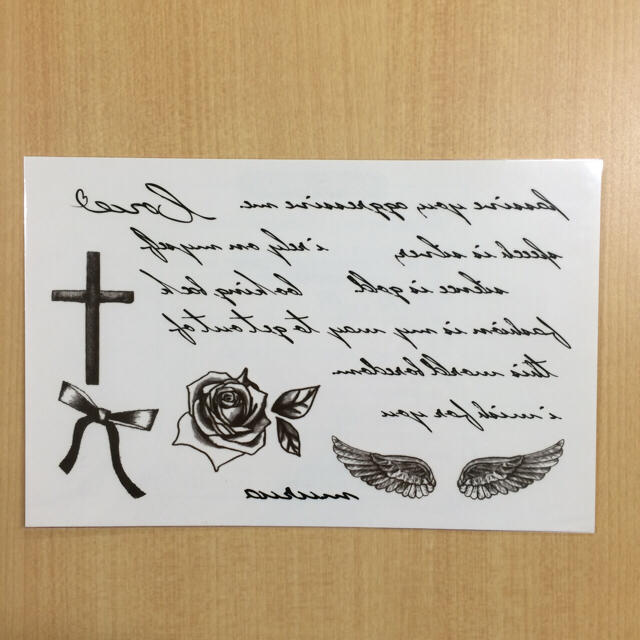 passive you, aggressive me.
Love
speech is silver,
i rely on myself
silence is gold.
looking back
fashion is my way to get out of
this world boredom.
i wish for you
murua